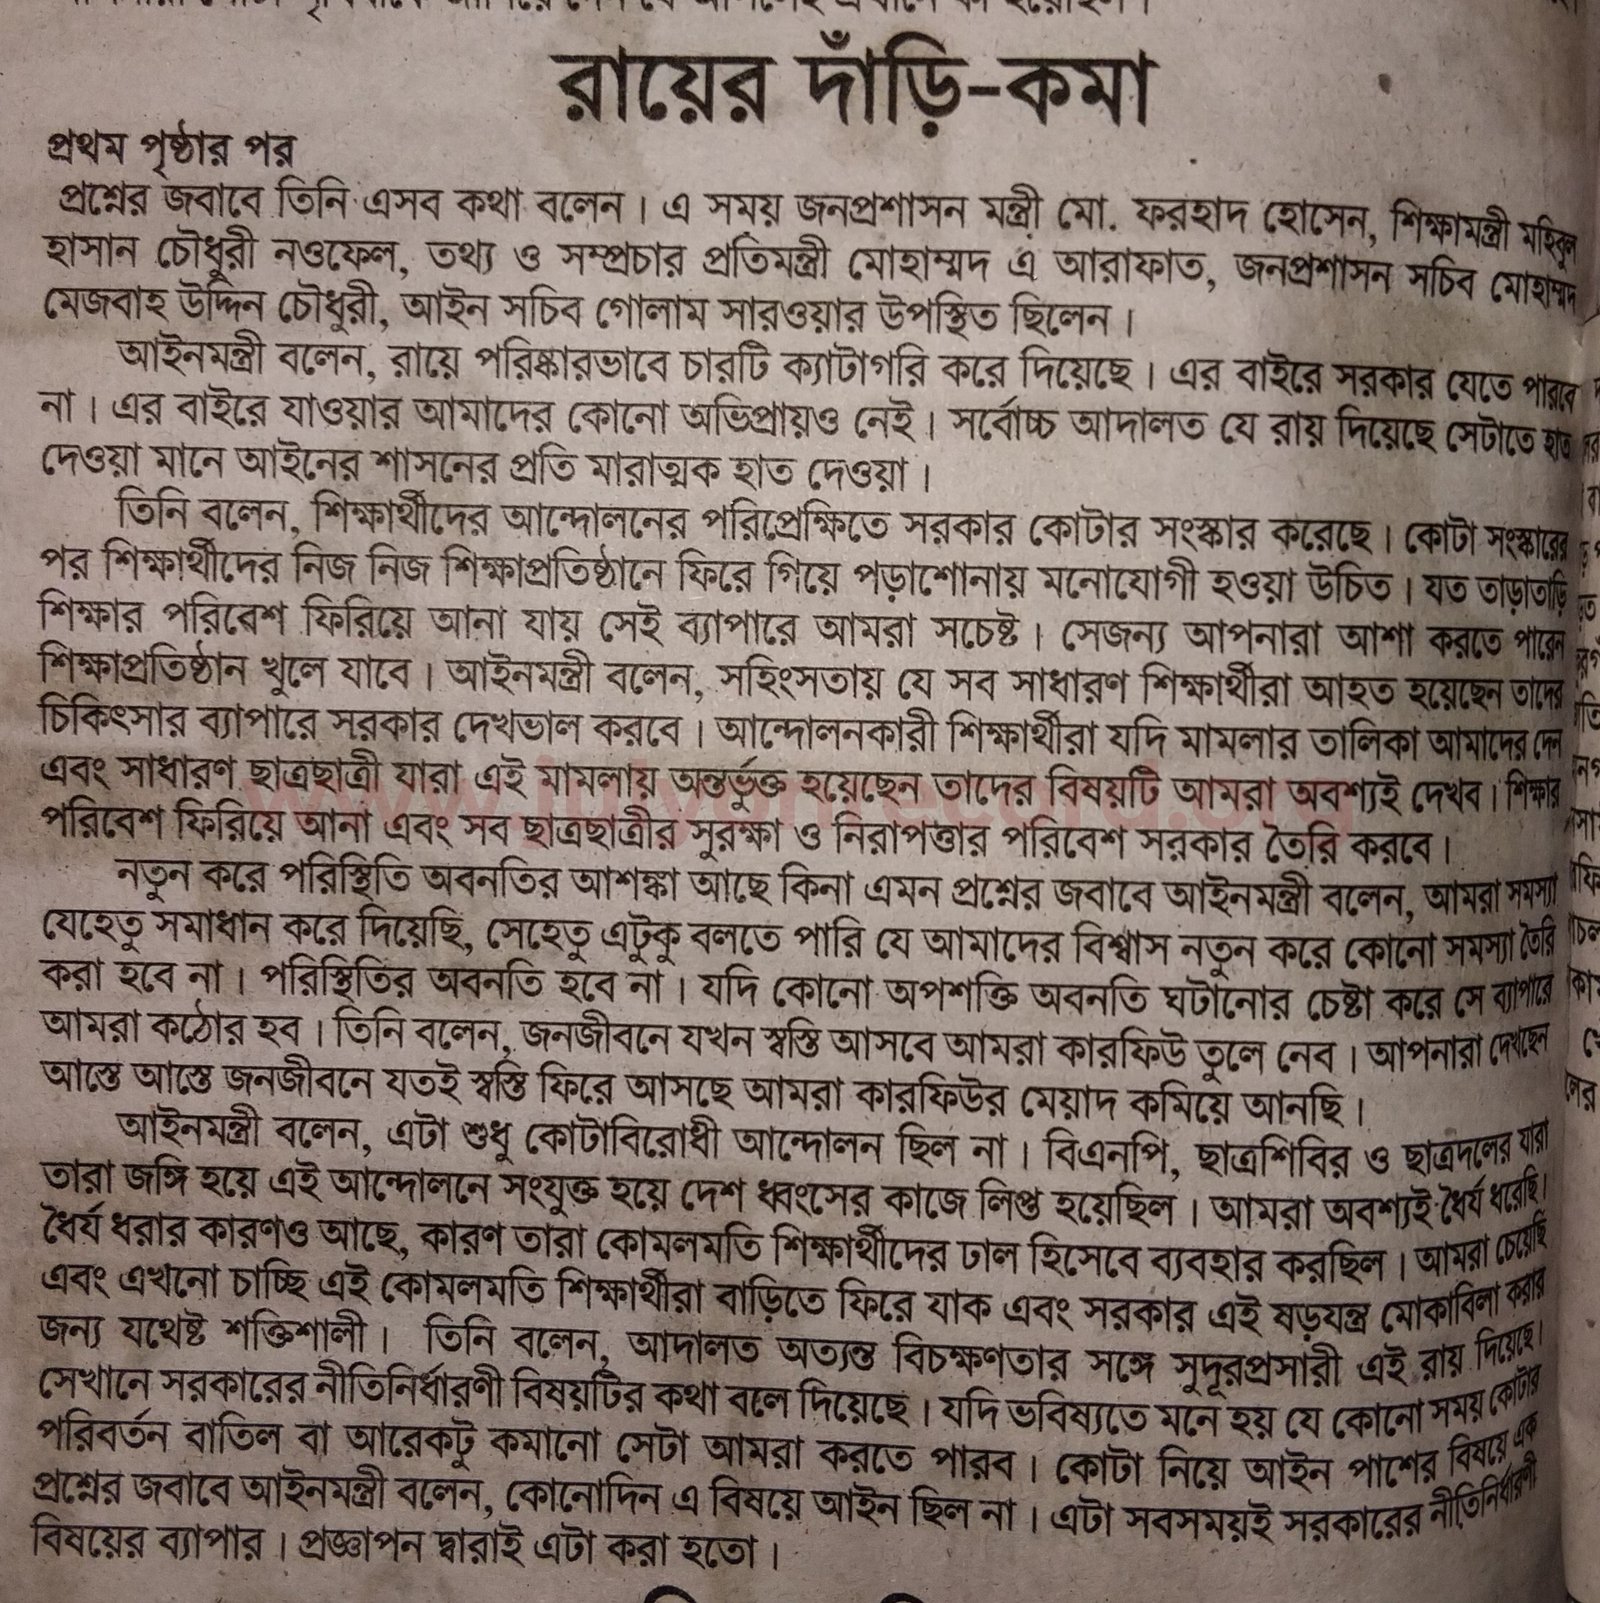 রায়ের দাঁড়ি-কমা
প্রথম পৃষ্ঠার পর
প্রশ্নের জবাবে তিনি এসব কথা বলেন। এ সময় জনপ্রশাসন মন্ত্রী মো. ফরহাদ হোসেন, শিক্ষামন্ত্রী মহিবুল
হাসান চৌধুরী নওফেল, তথ্য ও সম্প্রচার প্রতিমন্ত্রী মোহাম্মদ এ আরাফাত, জনপ্রশাসন সচিব মোহাম্মদ
মেজবাহ উদ্দিন চৌধুরী, আইন সচিব গোলাম সারওয়ার উপস্থিত ছিলেন।
আইনমন্ত্রী বলেন, রায়ে পরিষ্কারভাবে চারটি ক্যাটাগরি করে দিয়েছে। এর বাইরে সরকার যেতে পারবে
না। এর বাইরে যাওয়ার আমাদের কোনো অভিপ্রায়ও নেই। সর্বোচ্চ আদালত যে রায় দিয়েছে সেটাতে হাত
দেওয়া মানে আইনের শাসনের প্রতি মারাত্মক হাত দেওয়া।
তিনি বলেন, শিক্ষার্থীদের আন্দোলনের পরিপ্রেক্ষিতে সরকার কোটার সংস্কার করেছে। কোটা সংস্কারের
পর শিক্ষার্থীদের নিজ নিজ শিক্ষাপ্রতিষ্ঠানে ফিরে গিয়ে পড়াশোনায় মনোযোগী হওয়া উচিত। যত তাড়াতাড়ি
শিক্ষার পরিবেশ ফিরিয়ে আনা যায় সেই ব্যাপারে আমরা সচেষ্ট। সেজন্য আপনারা আশা করতে পারেন
শিক্ষাপ্রতিষ্ঠান খুলে যাবে। আইনমন্ত্রী বলেন, সহিংসতায় যে সব সাধারণ শিক্ষার্থীরা আহত হয়েছেন তাদের
চিকিৎসার ব্যাপারে সরকার দেখভাল করবে। আন্দোলনকারী শিক্ষার্থীরা যদি মামলার তালিকা আমাদের দেন
এবং সাধারণ ছাত্রছাত্রী যারা এই মামলায় অন্তর্ভুক্ত হয়েছেন তাদের বিষয়টি আমরা অবশ্যই দেখব। শিক্ষার
পরিবেশ ফিরিয়ে আনা এবং সব ছাত্রছাত্রীর সুরক্ষা ও নিরাপত্তার পরিবেশ সরকার তৈরি করবে।
নতুন করে পরিস্থিতি অবনতির আশঙ্কা আছে কিনা এমন প্রশ্নের জবাবে আইনমন্ত্রী বলেন, আমরা সমস্যা
যেহেতু সমাধান করে দিয়েছি, সেহেতু এটুকু বলতে পারি যে আমাদের বিশ্বাস নতুন করে কোনো সমস্যা তৈরি
করা হবে না। পরিস্থিতির অবনতি হবে না। যদি কোনো অপশক্তি অবনতি ঘটানোর চেষ্টা করে সে ব্যাপারে
আমরা কঠোর হব। তিনি বলেন, জনজীবনে যখন স্বস্তি আসবে আমরা কারফিউ তুলে নেব। আপনারা দেখছেন
আস্তে আস্তে জনজীবনে যতই স্বস্তি ফিরে আসছে আমরা কারফিউর মেয়াদ কমিয়ে আনছি।
আইনমন্ত্রী বলেন, এটা শুধু কোটাবিরোধী আন্দোলন ছিল না। বিএনপি, ছাত্রশিবির ও ছাত্রদলের যারা
তারা জঙ্গি হয়ে এই আন্দোলনে সংযুক্ত হয়ে দেশ ধ্বংসের কাজে লিপ্ত হয়েছিল। আমরা অবশ্যই ধৈর্য ধরেছি।
ধৈর্য ধরার কারণও আছে, কারণ তারা কোমলমতি শিক্ষার্থীদের ঢাল হিসেবে ব্যবহার করছিল। আমরা চেয়েছি
এবং এখনো চাচ্ছি এই কোমলমতি শিক্ষার্থীরা বাড়িতে ফিরে যাক এবং সরকার এই ষড়যন্ত্র মোকাবিলা করার
জন্য যথেষ্ট শক্তিশালী। তিনি বলেন, আদালত অত্যন্ত বিচক্ষণতার সঙ্গে সুদূরপ্রসারী এই রায় দিয়েছে।
সেখানে সরকারের নীতিনির্ধারণী বিষয়টির কথা বলে দিয়েছে। যদি ভবিষ্যতে মনে হয় যে কোনো সময় কোটার
পরিবর্তন বাতিল বা আরেকটু কমানো সেটা আমরা করতে পারব। কোটা নিয়ে আইন পাশের বিষয়ে এক
প্রশ্নের জবাবে আইনমন্ত্রী বলেন, কোনোদিন এ বিষয়ে আইন ছিল না। এটা সবসময়ই সরকারের নীতিনির্ধারণী
বিষয়ের ব্যাপার। প্রজ্ঞাপন দ্বারাই এটা করা হতো।